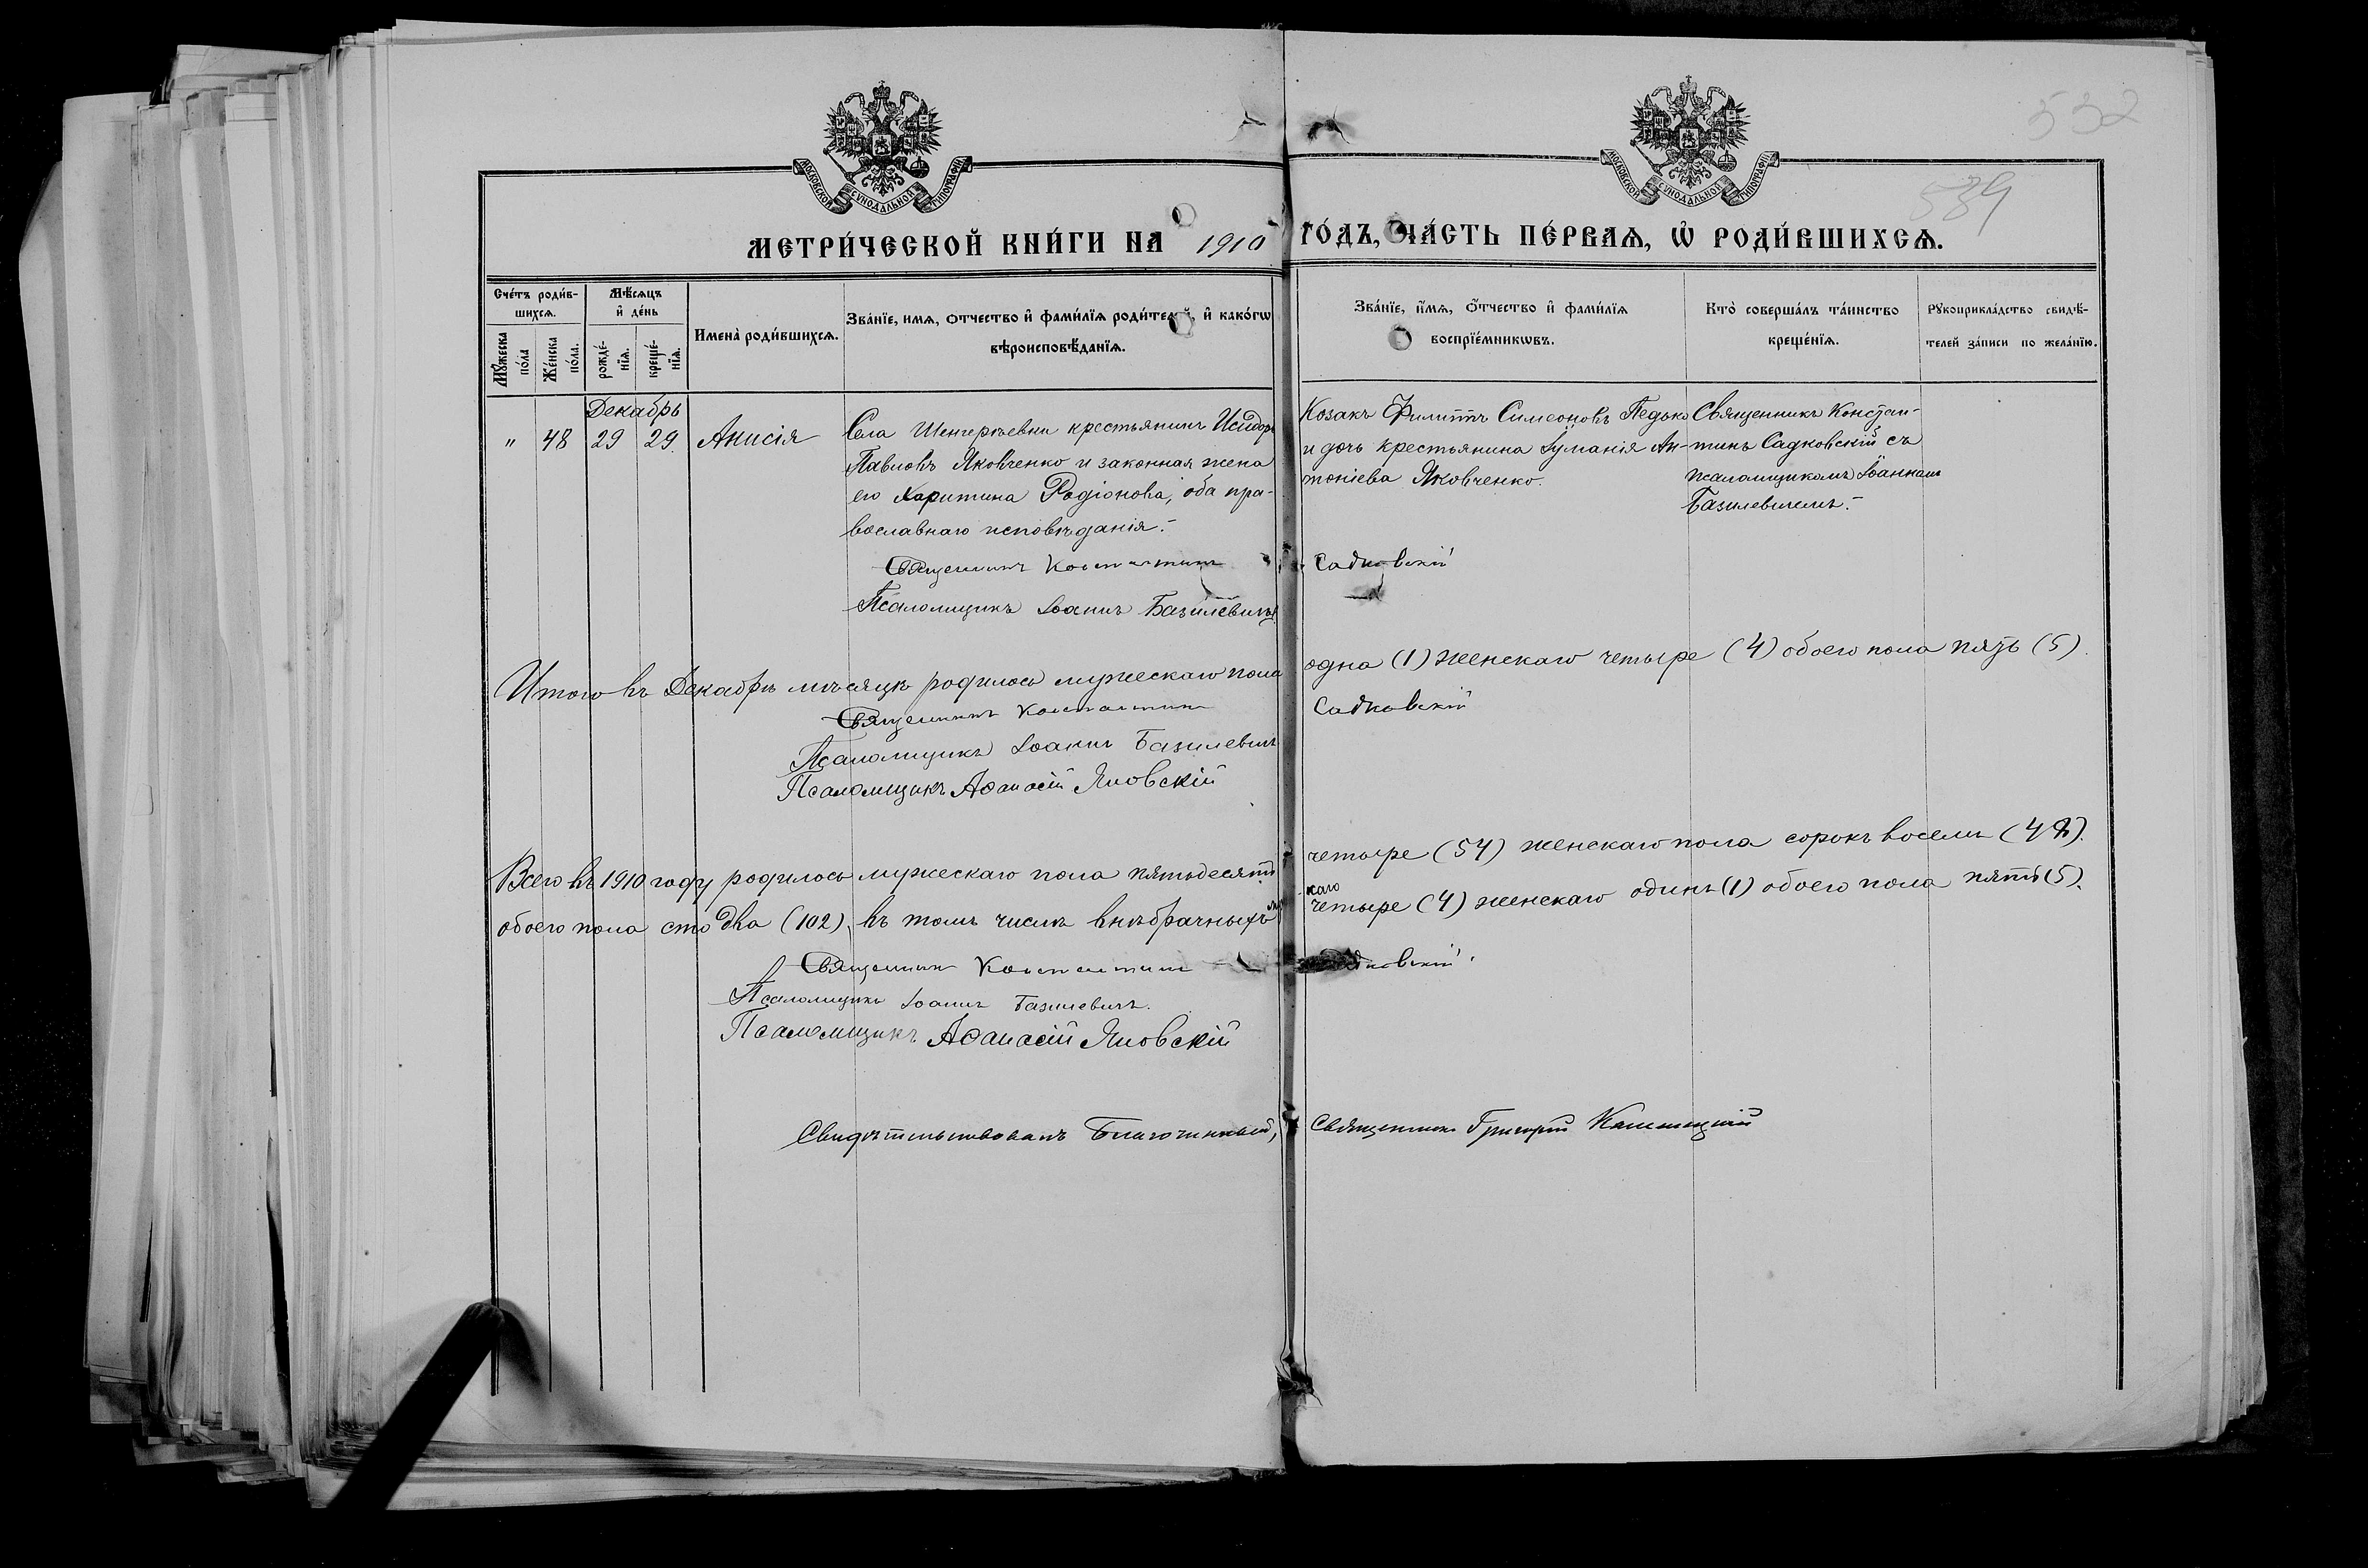 532
589
МОСКОВСКОЙ СѴНОДАЛЬНОЙ ТИПОГРАФІИ
МОСКОВСКОЙ СѴНОДАЛЬНОЙ ТИПОГРАФІИ
МЕТРИ́ЧЕСКОЙ КНИ́ГИ НА 1910 ГО́ДЪ, ЧА́СТЬ ПЕ́РВАѦ, Ѡ҆ РОДИ́ВШИХСѦ.
Сче́тъ роди́в-
шихсѧ.
Мꙋ́жеска по́ла
Же́нска по́ла.
Мѣ́сѧцъ
и҆ де́нь
рожде́-
нїѧ.
креще́-
нїѧ.
Имена̀ роди́вшихсѧ.
Зва́нїе, имѧ, ѻтчество и҆ фами́лїѧ роди́телей, и҆ како́гѡ
вѣроисповѣ́данїѧ.
Зва́нїе, и҆́мѧ, ѻ҆́тчество и҆ фами́лїѧ
воспрїе́мникѡвъ.
Кто̀ соверша́лъ та́инство
креще́нїѧ.
Рꙋкоприкла́дство свидѣ́-
телей за́писи по жела́нїю.
Декабрь
" 48 29 29. Акисія
Села крестьянинъ Исидоръ
Павловъ Яковченко и законная жена
его Харитина Родіонова, оба пра-
вославнаго исповѣданія.-
Козакъ Филиппъ Симеоновъ Педько
и дочь крестьянина Ан-
тоніева Яковченко.
Священникъ Констан-
тинъ Садковскій съ
псаломщикомъ Іоанномъ
Базилевичемъ.-
Священникъ Константинъ Садковскій
Псаломщикъ Іоаннъ Базилевичъ
Итого въ Декабрѣ мѣсяцѣ родилось мужескаго пола одна (1) женскаго четыре (4) обоего пола пять (5).
Священникъ Константинъ Садковскій
Псаломщикъ Іоаннъ Базилевичъ
Псаломщикъ Аѳанасій Яновскій
Всего въ 1910 году родилось мужескаго пола пятьдесятъ четыре (54) женскаго пола сорокъ восемь (48).
обоего пола сто два (102), въ томъ числѣ внѣбрачныхъ четыре (4) женскаго одинъ (1) обоего пола пять (5).
Священникъ Константинъ Садковскій.
Псаломщикъ Іоаннъ Базилевичъ.
Псаломщикъ Аѳанасій Яновскій
Свидѣтельствовалъ Благочинный, Священникъ Григорій